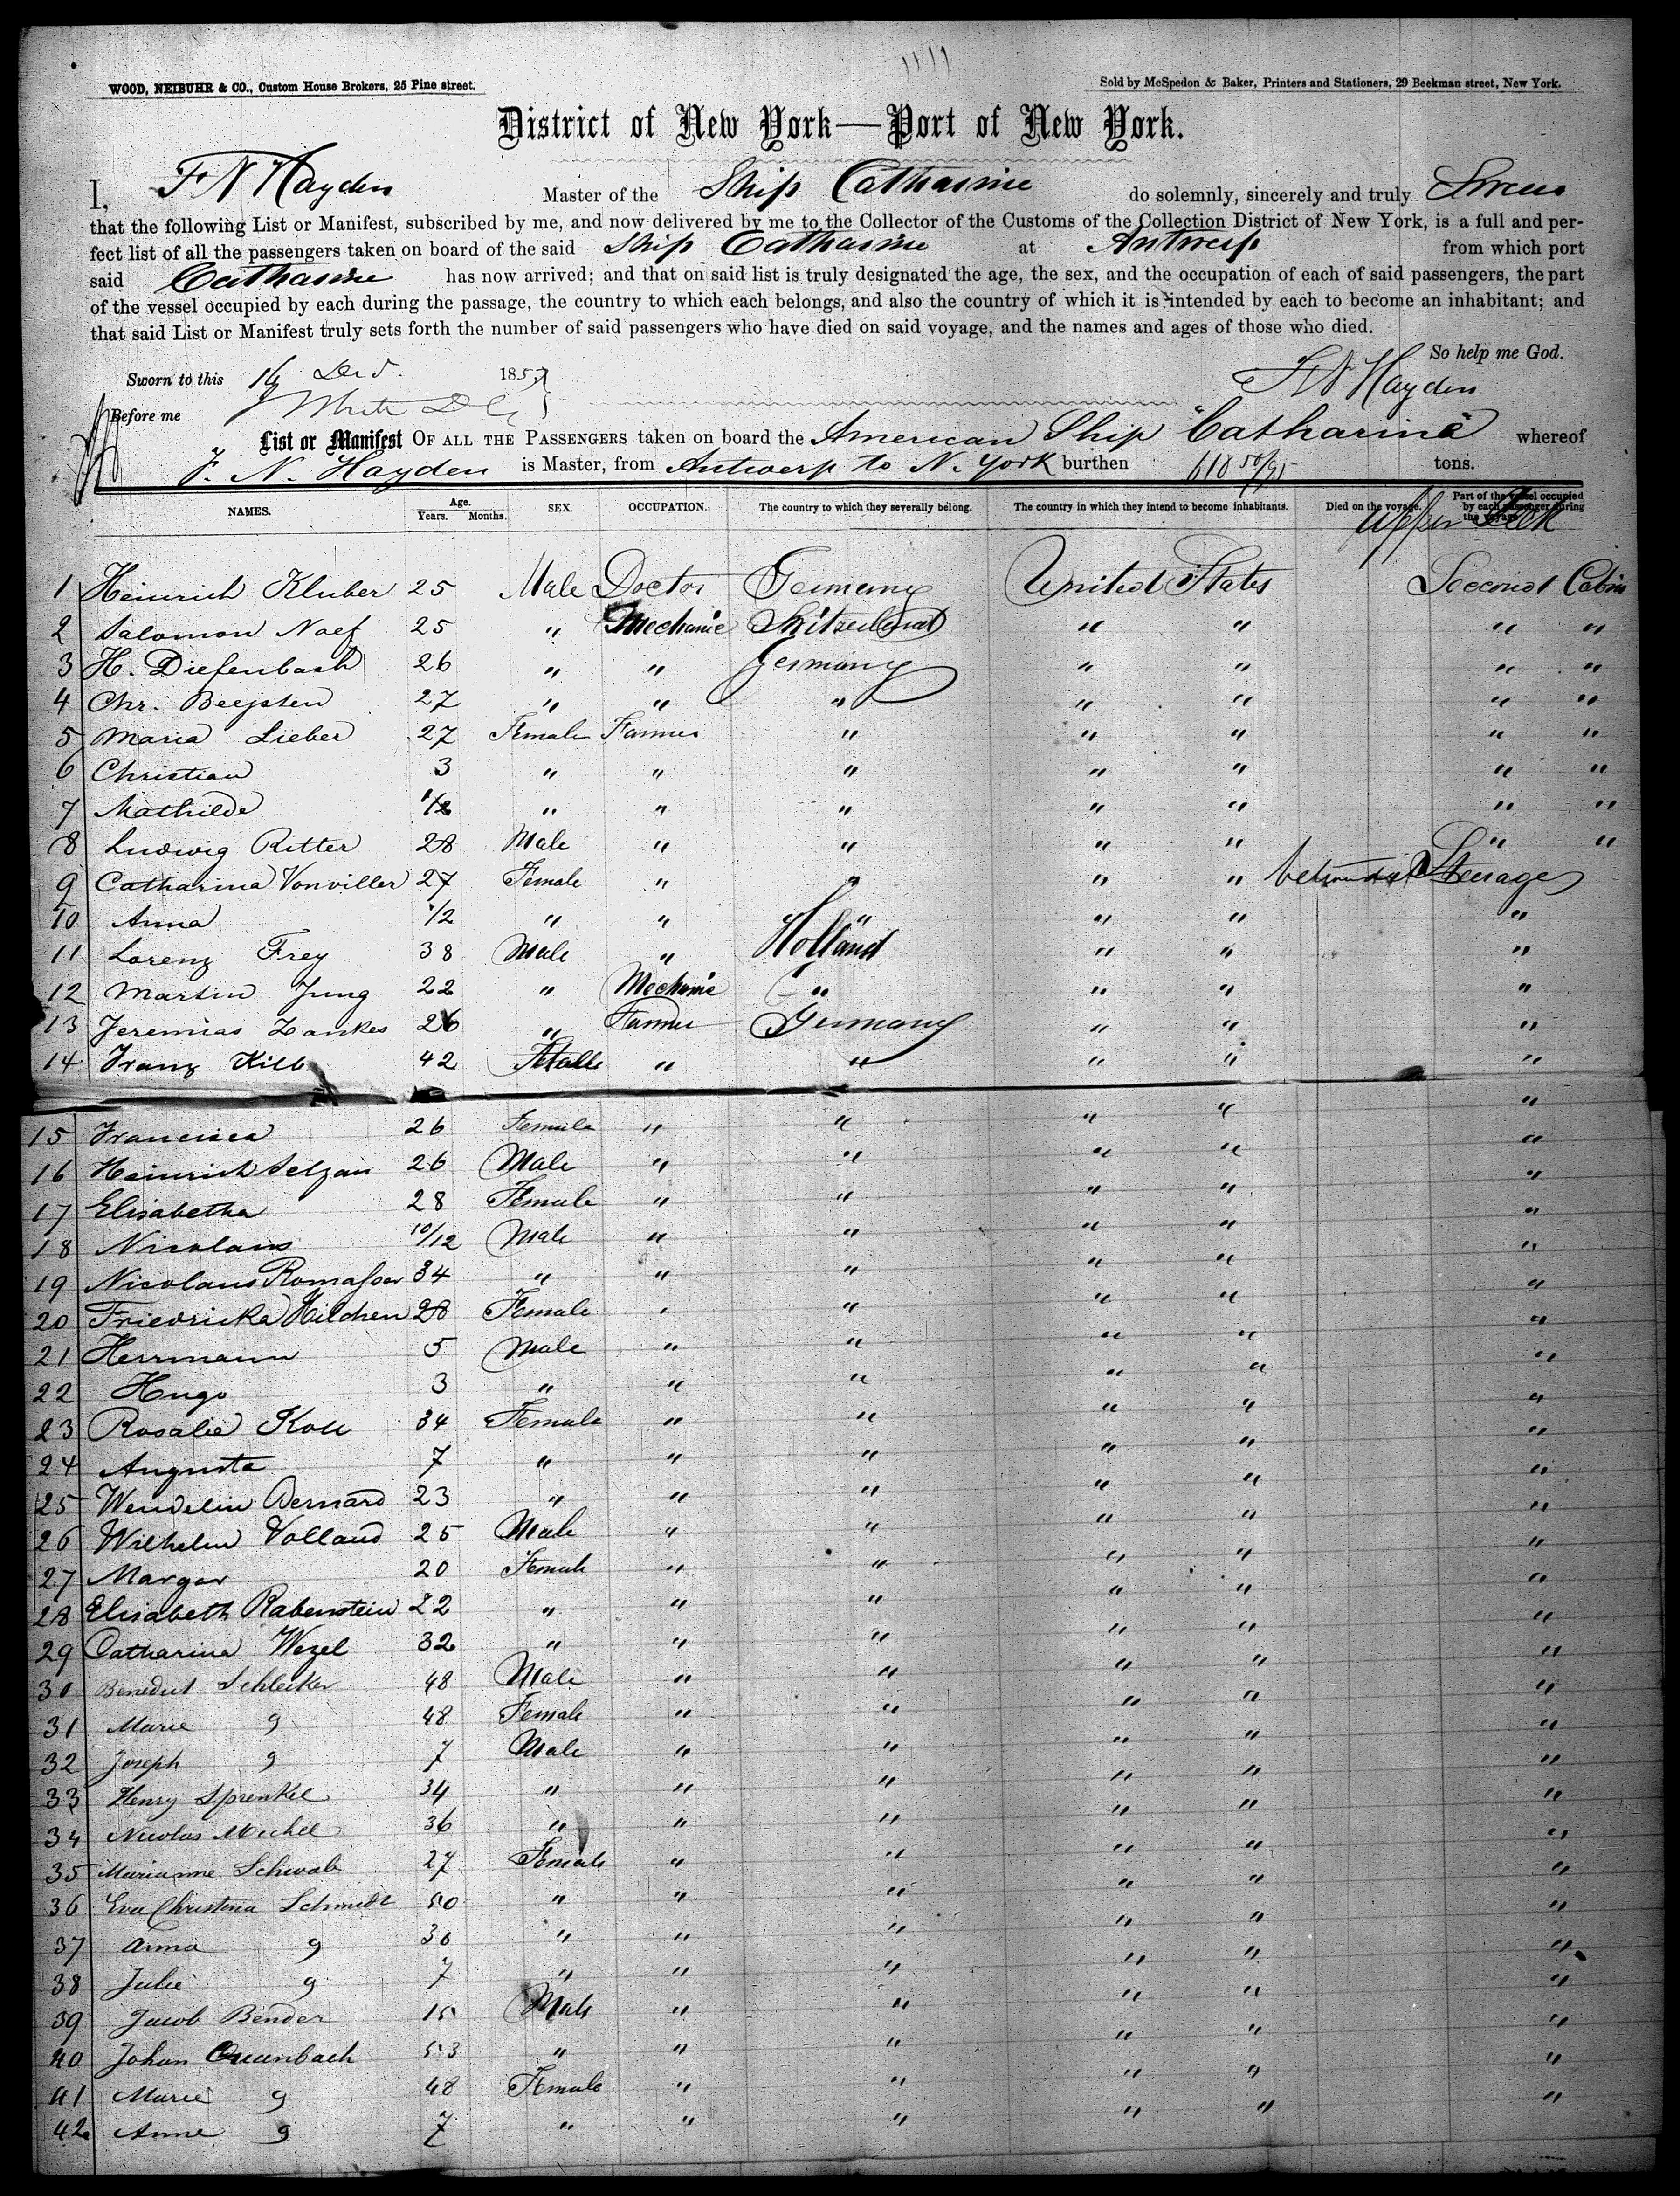 WOOD, NEIBUHR & CO., Custom House Brokers, 25 Pine street.
Sold by McSpedon & Baker, Printers and Stationers, 29 Beekman street, New York.
District of New York—Port of New York.
I, F N Hayden Master of the Ship Catharine do solemnly, sincerely and truly Swear
that the following List or Manifest, subscribed by me, and now delivered by me to the Collector of the Customs of the Collection District of New York, is a full and per-
fect list of all the passengers taken on board of the said Ship Catharine at Antwerp from which port
said Catharine has now arrived; and that on said list is truly designated the age, the sex, and the occupation of each of said passengers, the part
of the vessel occupied by each during the passage, the country to which each belongs, and also the country of which it is intended by each to become an inhabitant; and
that said List or Manifest truly sets forth the number of said passengers who have died on said voyage, and the names and ages of those who died.
So help me God.
Sworn to this 16 1857
F N Hayden
Before me White
List or Manifest OF ALL THE PASSENGERS taken on board the American Ship "Catharine" whereof
F. N. Hayden is Master, from Antwerp to N. York burthen 618 50/95 tons.
NAMES. Age. Years. Months. SEX. OCCUPATION. The country to which they severally belong. The country in which they intend to become inhabitants. Died on the voyage. Part of the vessel occupied by each passenger during the voyage.
Upper Deck
1 Heinrich Kluber 25 Male Doctor Germany United States Second Cabin
2 Salomon Naef 25 " Mechanic " " " "
3 H. Diefenbach 26 " " Germany " " " "
4 Chr. 27 " " " " " " "
5 Maria Lieber 27 Female Farmer " " " " "
6 Christian 3 " " " " " " "
7 Mathilde 1/2 " " " " " " "
8 Ludwig Ritter 28 Male " " " " " "
9 Catharina Vonviller 27 Female " " " " Steerage
10 Anna 1/2 " " " " " "
11 Lorenz Frey 38 Male " Holland " " "
12 Martin Jung 22 " Mechanic " " " "
13 Jeremias Zankes 26 " Farmer Germany " " "
14 Franz Kilb 42 Male " " " " "
15 Francisca 26 Female " " " " "
16 Heinrich Selzam 26 Male " " " " "
17 Elisabetha 28 Female " " " " "
18 Nicolaus 10/12 Male " " " " "
19 Nicolaus 34 " " " " " "
20 Friedricka Hilchen 28 Female " " " " "
21 Herrmann 5 Male " " " " "
22 Hugo 3 " " " " " "
23 Rosalie 34 Female " " " " "
24 Augusta 7 " " " " " "
25 Wendelin Bernard 23 " " " " " "
26 Wilhelm Volland 25 Male " " " " "
27 Margar 20 Female " " " " "
28 Elisabeth Rabenstein 22 " " " " " "
29 Catharina Wezel 32 " " " " " "
30 Benedict Schlecker 48 Male " " " " "
31 Marie 48 Female " " " " "
32 Joseph 7 Male " " " " "
33 Henry Sprenkel 34 " " " " " "
34 Nicolas Michel 36 " " " " " "
35 Marianne Schwab 27 Female " " " " "
36 Eva Christina Schmidt 50 " " " " " "
37 Anna 30 " " " " " "
38 Julie 7 " " " " " "
39 Jacob Bender 15 Male " " " " "
40 Johan 53 " " " " " "
41 Marie 48 Female " " " " "
42 Anne 7 " " " " "